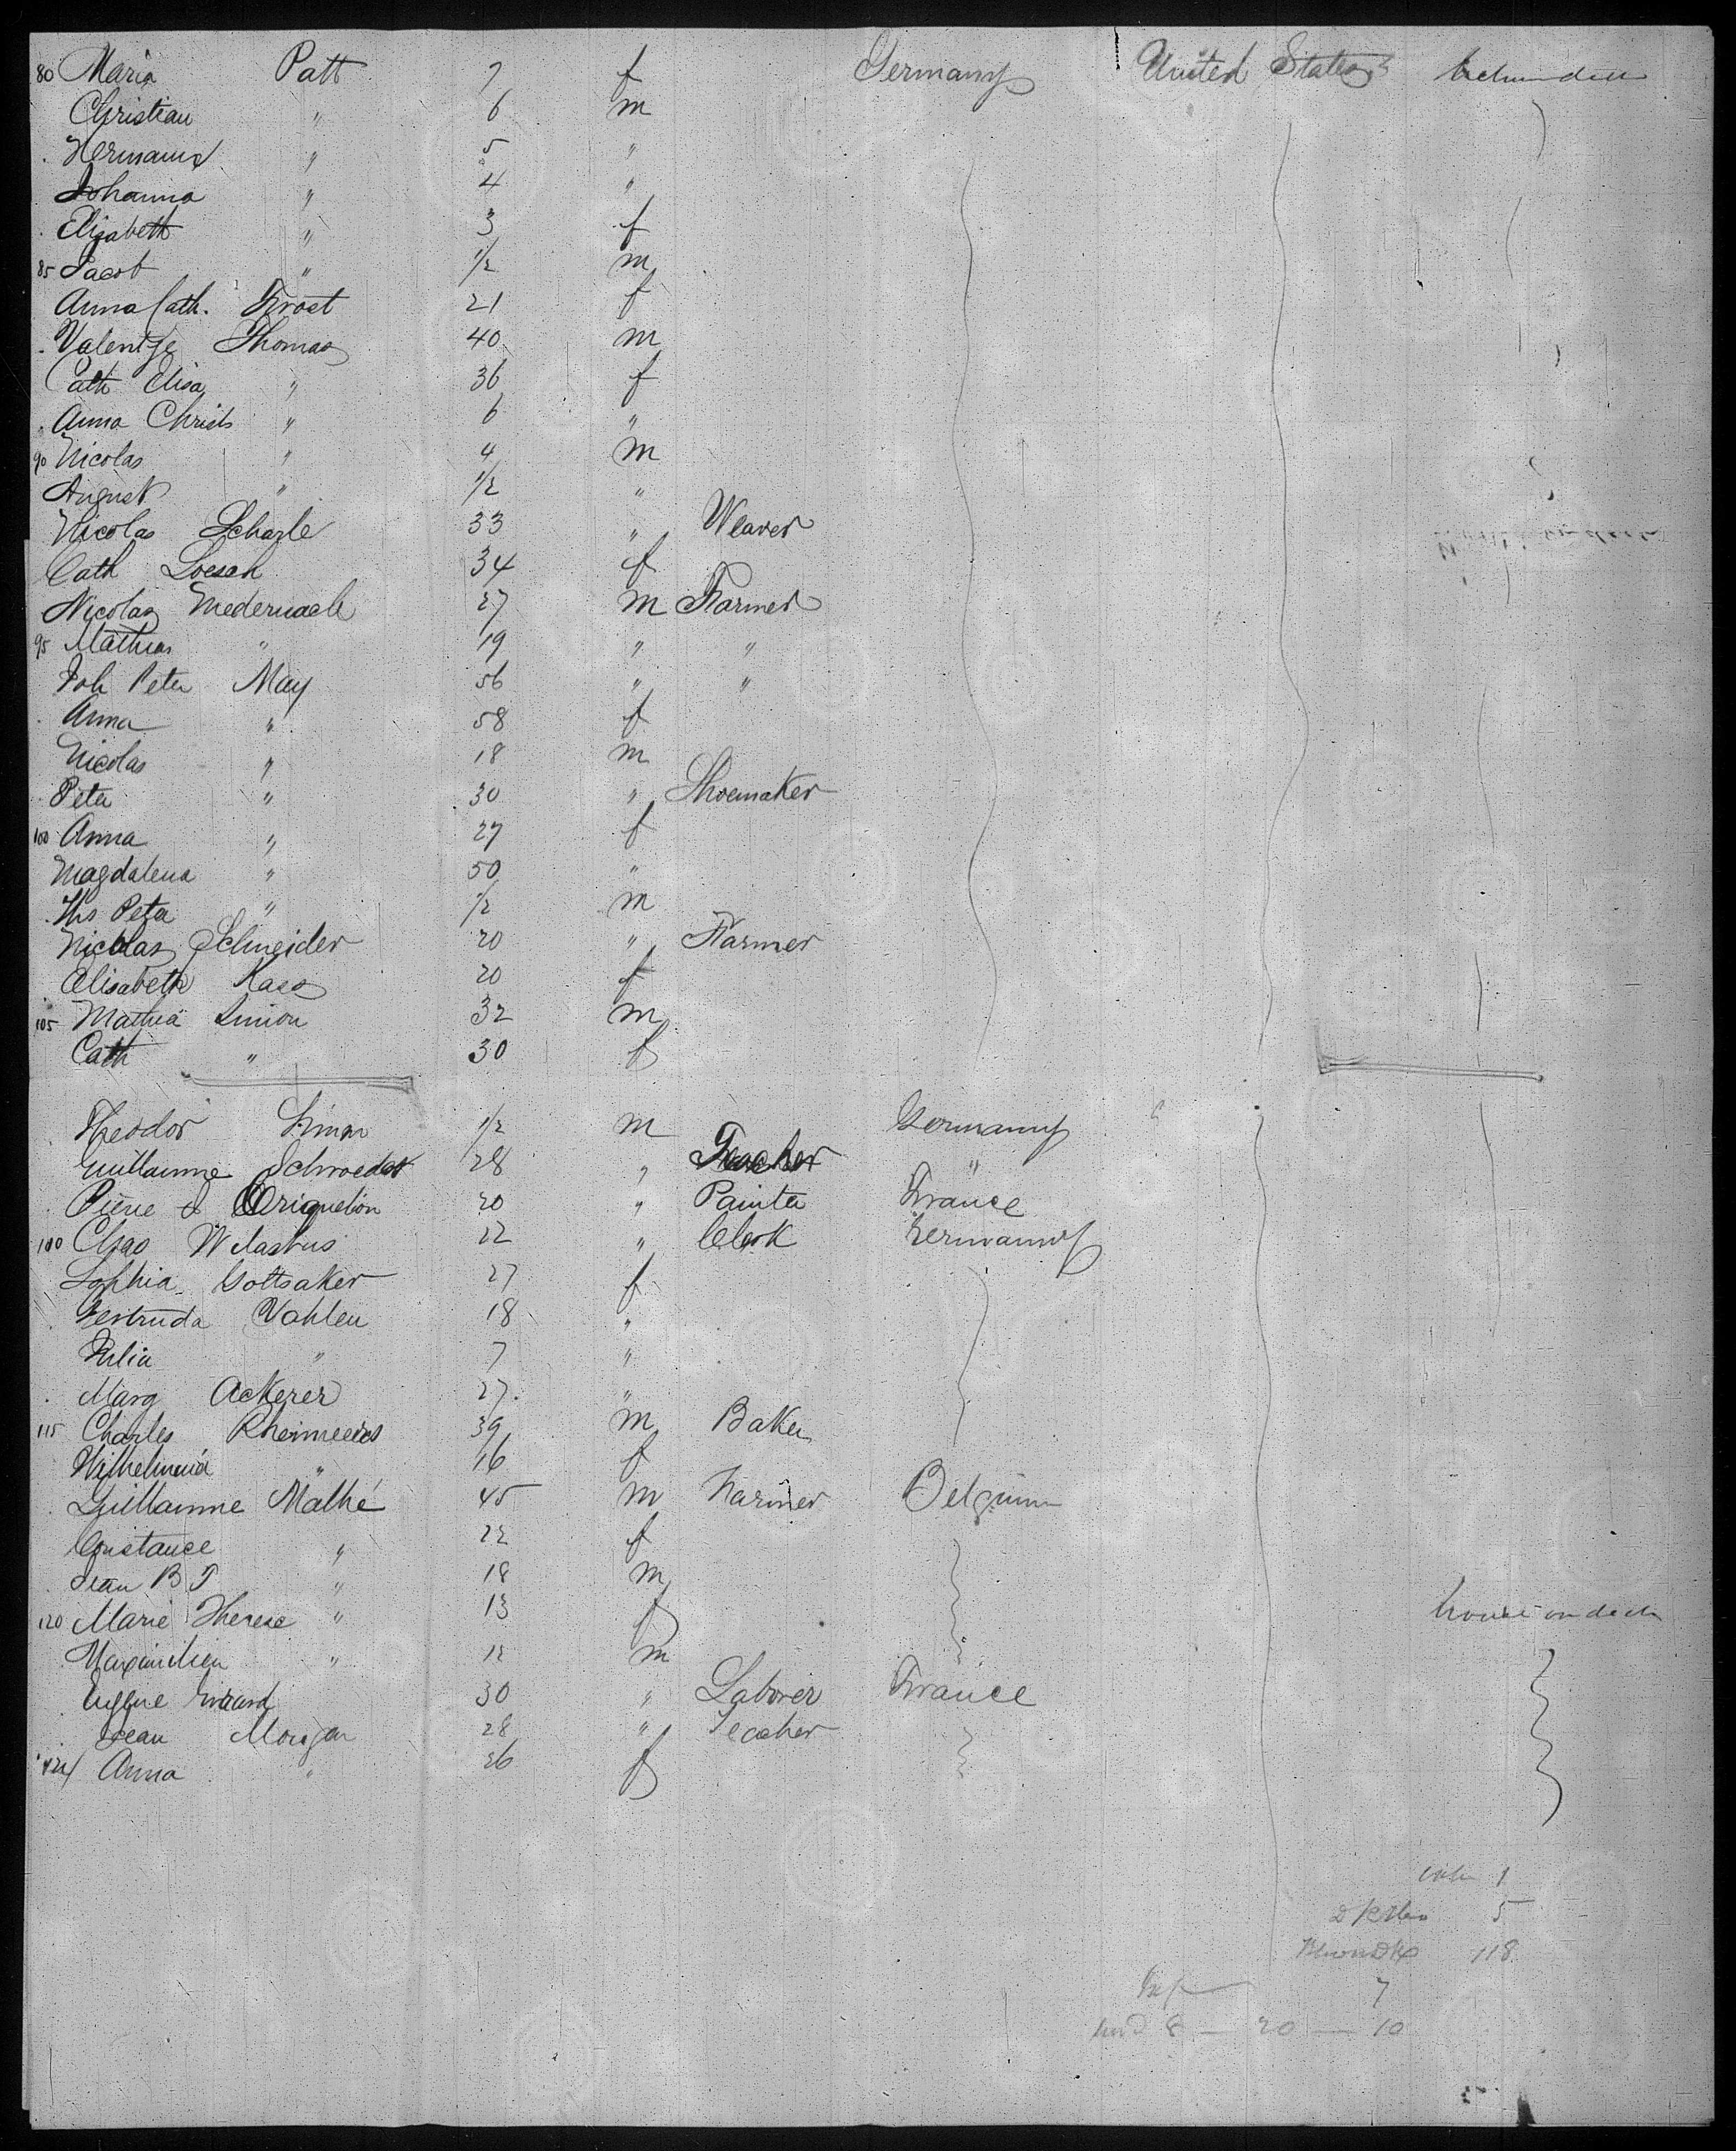 80 Maria Patt 7 f Germany United States
Christian " 6 m
Hermann " 5 "
Johanna " 4 "
Elisabeth " 3 f
85 Jacob " 1/2 m
Anna Cath. Frost 21 f
Thomas 40 m
Cath Elisa " 36 f
Anna Christ " 6 "
90 Nicolas " 4 m
August " 1/2 "
Nicolas Scharle 33 " Weaver
Cath Loesch 34 f
Nicolas 27 m Farmer
95 Mathias " 19 " "
Joh Peter May 56 " "
Anna " 58 f
Nicolas " 18 m
Peter " 30 " Shoemaker
100 Anna " 27 f
Magdalena " 50 "
Peter " 1/2 m
Nicolas Schneider 20 " Farmer
Elisabeth Kass 20 f
105 Mathia Simon 32 m
Cath " 30 f
Theodor Simon 1/2 m Germany
Guillaume Schroeder 28 " Teacher "
Pierre 20 " Painter France
100 Chas 22 " Clerk Germany
Sophia Gottsaker 27 f
Gertruda Vahlen 18 "
Julia " 7 "
Marg Ackerer 27. "
115 Charles 39 m Baker
Wilhelmina " 16 f
Guillaume Mathé 45 m Farmer Belgium
Constance " 22 f
Jean B T " 18 m
120 Marie Therese " 13 f house on deck
Maximilien " 12 m
Eugene 30 " Laborer France
Jean 28 " Teacher
124 Anna " 26 f
1
5
118
7
8 — 20 — 10